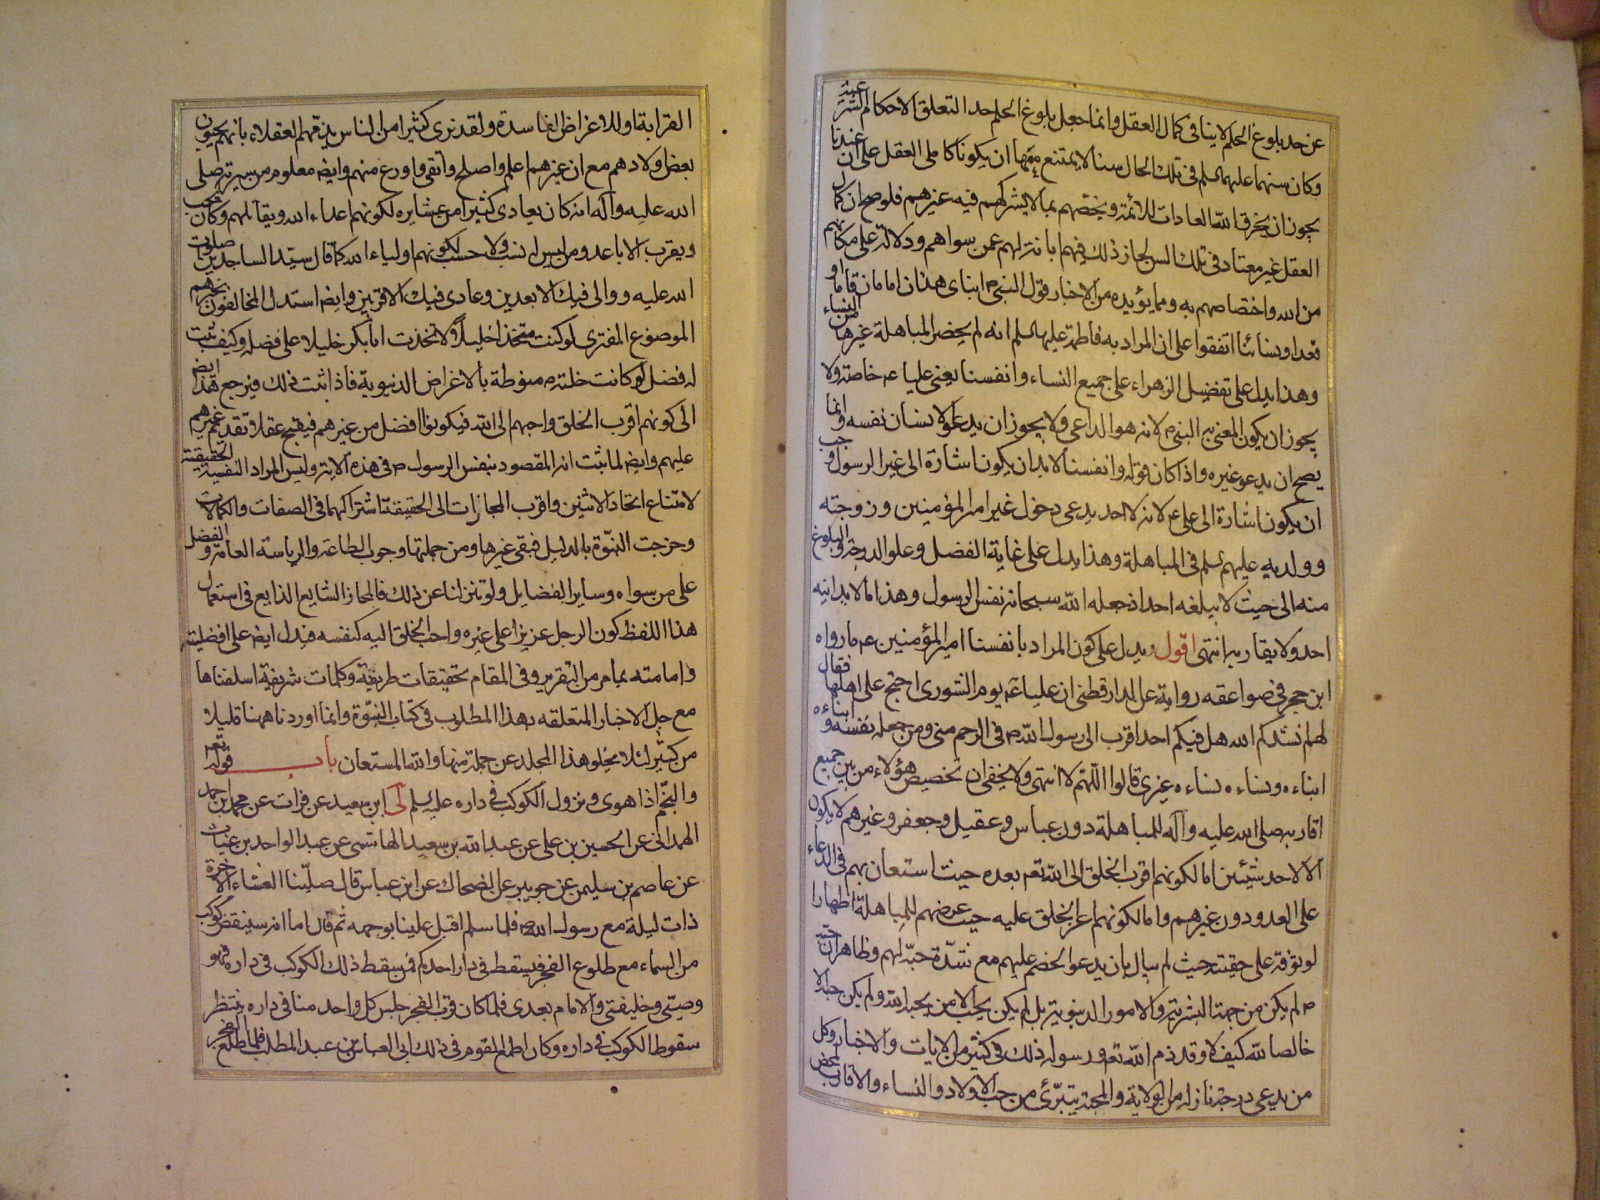 عن حد بلوغ الحلم لا ينافي كمال العقل وانما جعل بلوغ الحلم حدا لتعلق الاحكام الشرعية
وكان سنهما عليهما السلم في تلك الحال سنا لا يمتنع معها ان يكونا كاملي العقل على ان عندنا
يجوز ان يخرق الله العادات للائمة ويخصهم بما لا يشركهم فيه غيرهم فلو صح ان كمال
العقل غير معتاد في تلك السن لجاز ذلك فيهم ابانة لهم عمن سواهم ودلالة على مكانهم
من الله واختصاصهم به ومما يؤيده من الاخبار قول النبي ص ابناي هذان امامان قاما او
قعدا ونساءنا اتفقوا على ان المراد به فاطمة عليها السلم لانه لم يحضر المباهلة غيرها من النساء
وهذا يدل على تفضيل الزهراء على جميع النساء وانفسنا يعني عليا ع خاصة ولا
يجوز ان يكون المعني به النبي ص لانه هو الداعي ولا يجوز ان يدعو الانسان نفسه وانما
يصح ان يدعو غيره واذا كان قوله وانفسنا لا بد ان يكون اشارة الى غير الرسول وجب
ان يكون اشارة الى علي ع لانه لا احد يدعي دخول غير امير المؤمنين وزوجته
وولديه عليهم السلم في المباهلة وهذا يدل على غاية الفضل وعلو الدرجة والبلوغ
منه الى حيث لا يبلغه احد اذ جعله الله سبحانه نفس الرسول وهذا ما لا يدانيه
احد ولا يقاربه انتهى اقول ويدل على كون المراد بانفسنا امير المؤمنين ع ما رواه
ابن حجر في صواعقه رواية عن الدارقطني ان عليا ع يوم الشورى احتج على اهلها فقال
لهم انشدكم الله هل فيكم احد اقرب الى رسول الله ص في الرحم مني ومن جعله نفسه و ابناءه
ابناءه ونساءه نساءه غيري قالوا اللهم لا انتهى ولا يخفى ان تخصيص هؤلاء من بين جميع
اقاربه صلى الله عليه وآله للمباهلة دون عباس وعقيل وجعفر وغيرهم لا يكون
الا لاحد شيئين اما لكونهم اقرب الخلق الى الله تعم بعده حيث استعان بهم في الدعاء
على العدو دون غيرهم واما لكونهم اعز الخلق عليه حيث عرضهم للمباهلة اظهارا
لوثوقه على حقيته حيث لم يبال بان يدعو الخصم عليهم مع شدة حبه لهم وظاهر ان حبه
ص لم يكن من جهة البشرية والامور الدنيوية بل لم يكن يحب الا من يحبه الله ولم يكن حبه الا
خالصا لله كيف لا وقد ذم الله تعم ورسوله ذلك في كثير من الايات والاخبار وكل
من يدعي درجة نازلة من الولاية والمحبة يتبرئ من حب الاولاد والنساء والاقارب لمحض
القرابة او للاغراض الفاسدة ولقد نرى كثيرا من الناس يذمهم العقلاء بانهم يحبون
بعض اولادهم مع ان غيرهم اعلم واصلح واتقى واورع منهم وايضا معلوم من سيرته صلى
الله عليه وآله انه كان يعادي كثيرا من عشايره لكونهم اعداء الله ويقاتلهم وكان يحب
ويقرب الاباعد ومن ليس له نسب ولا حسب لكونهم اولياء الله كما قال سيد الساجدين صلوات
الله عليه ووالى فيك الابعدين وعادى فيك الاقربين وايضا استدل المخالفون بخبرهم
الموضوع المفترى لو كنت متخذا خليلا لاتخذت ابا بكر خليلا على فضله وكيف يثبت
له فضل لو كانت خلته ص منوطة بالاغراض الدنيوية فاذا ثبت ذلك فيرجع هذا ايضا
الى كونهم اقرب الخلق واحبهم الى الله فيكونوا افضل من غيرهم فيقبح عقلا تقديم غيرهم
عليهم وايضا لما ثبت ان المقصود بنفس الرسول ص في هذه الاية وليس المراد النفسية الحقيقية
لامتناع اتحاد الاثنين واقرب المجازات الى الحقيقة اشتراكهما في الصفات والكمالات
وخرجت النبوة بالدليل فبقي غيرها ومن جملتها وجوب الطاعة والرياسة العامة والفضل
على من سواه وساير الفضايل ولو تنزلنا عن ذلك فالمجاز الشايع الذايع في استعمال
هذا اللفظ كون الرجل عزيزا على غيره واحب الخلق اليه كنفسه فيدل ايضا على افضليته
وامامته بما مر من التقرير وفي المقام تحقيقات طريفة وكلمات شريفة اسلفناها
مع جل الاخبار المتعلقه بهذا المطلوب في كتاب النبوة وانما اوردنا ههنا قليلا
من كثير لئلا يخلو هذا المجلد عن جملة منها والله المستعان باب قوله تعم
والنجم اذا هوى ونزول الكوكب في داره عليه السلم لى ابن سعيد عن فرات عن محمد بن احمد
الهمداني عن الحسين بن علي عن عبد الله بن سعيد الهاشمي عن عبد الواحد بن غياث
عن عاصم بن سليمن عن جويبر عن الضحاك عن ابن عباس قال صلينا العشاء الآخرة
ذات ليلة مع رسول الله ص فلما سلم اقبل علينا بوجهه ثم قال اما انه سينقض كوكب
من السماء مع طلوع الفجر فيسقط في دار احدكم فمن سقط ذلك الكوكب في داره فهو
وصيي وخليفتي والامام بعدي فلما كان قرب الفجر جلس كل واحد منا في داره ينتظر
سقوط الكوكب في داره وكان اطمع القوم في ذلك ابي العباس بن عبد المطلب فلما طلع الفجر